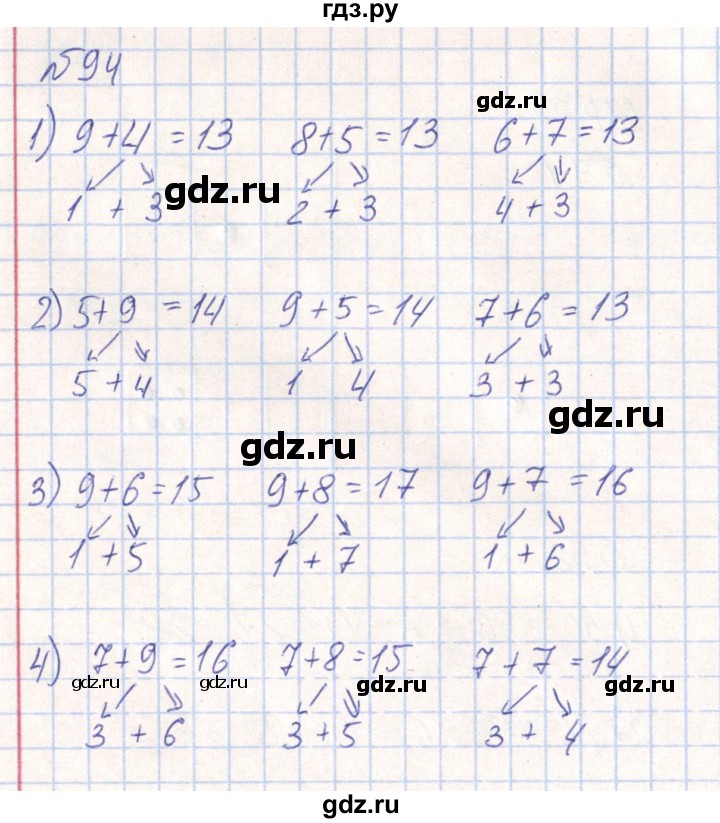 гдз.ру
№94
gdz.ru
1) 9+4 = 13 8+5 = 13 6+7 = 13
gdz.ru
1 + 3 2 + 3 4 + 3
2) 5+9 = 14 9+5 = 14 7+6 = 13
5 + 4 1 4 3 + 3
gdz.ru
gdz.ru
3) 9+6 = 15 9+8 = 17 9+7 = 16
1 + 5 1 + 7 1 + 6
4) 7+9 = 16 7+8 = 15 7+7 = 14
gdz.ru gdz.ru gdz.ru gdz.ru
3 + 6 3 + 5 3 + 4
gdz.ru